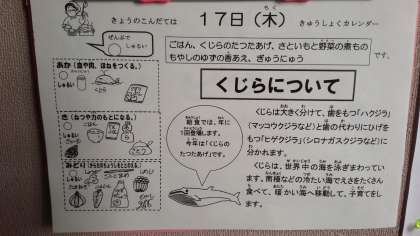 きょうのこんだては
17日(木)
きゅうしょくカレンダー
ぜんぶで
しゅるい
ごはん、くじらのたつたあげ、さといもと野菜の煮もの
もやしのゆずの香あえ、ぎゅうにゅう
です。
あか(血や肉、ほねをつくる。)
しゅるい
くじら
き(ねつや力のもとになる。)
しゅるい
ごはん
さといも
みどり(からだのちょうしをととのえる。)
しゅるい
くじらについて
給食では、年に
1回登場します。
今年は「くじらの
たつたあげ」です。
くじらは大きく分けて、歯をもつ「ハクジラ」
(マッコウクジラなど)と歯の代わりにひげを
もつ「ヒゲクジラ」(シロナガスクジラなど)に
分かれます。
くじらは、世界中の海を泳ぎまわってい
ます。南極などの冷たい海でえさをたくさん
食べて、暖かい海へ移動して、子育てをし
ます。